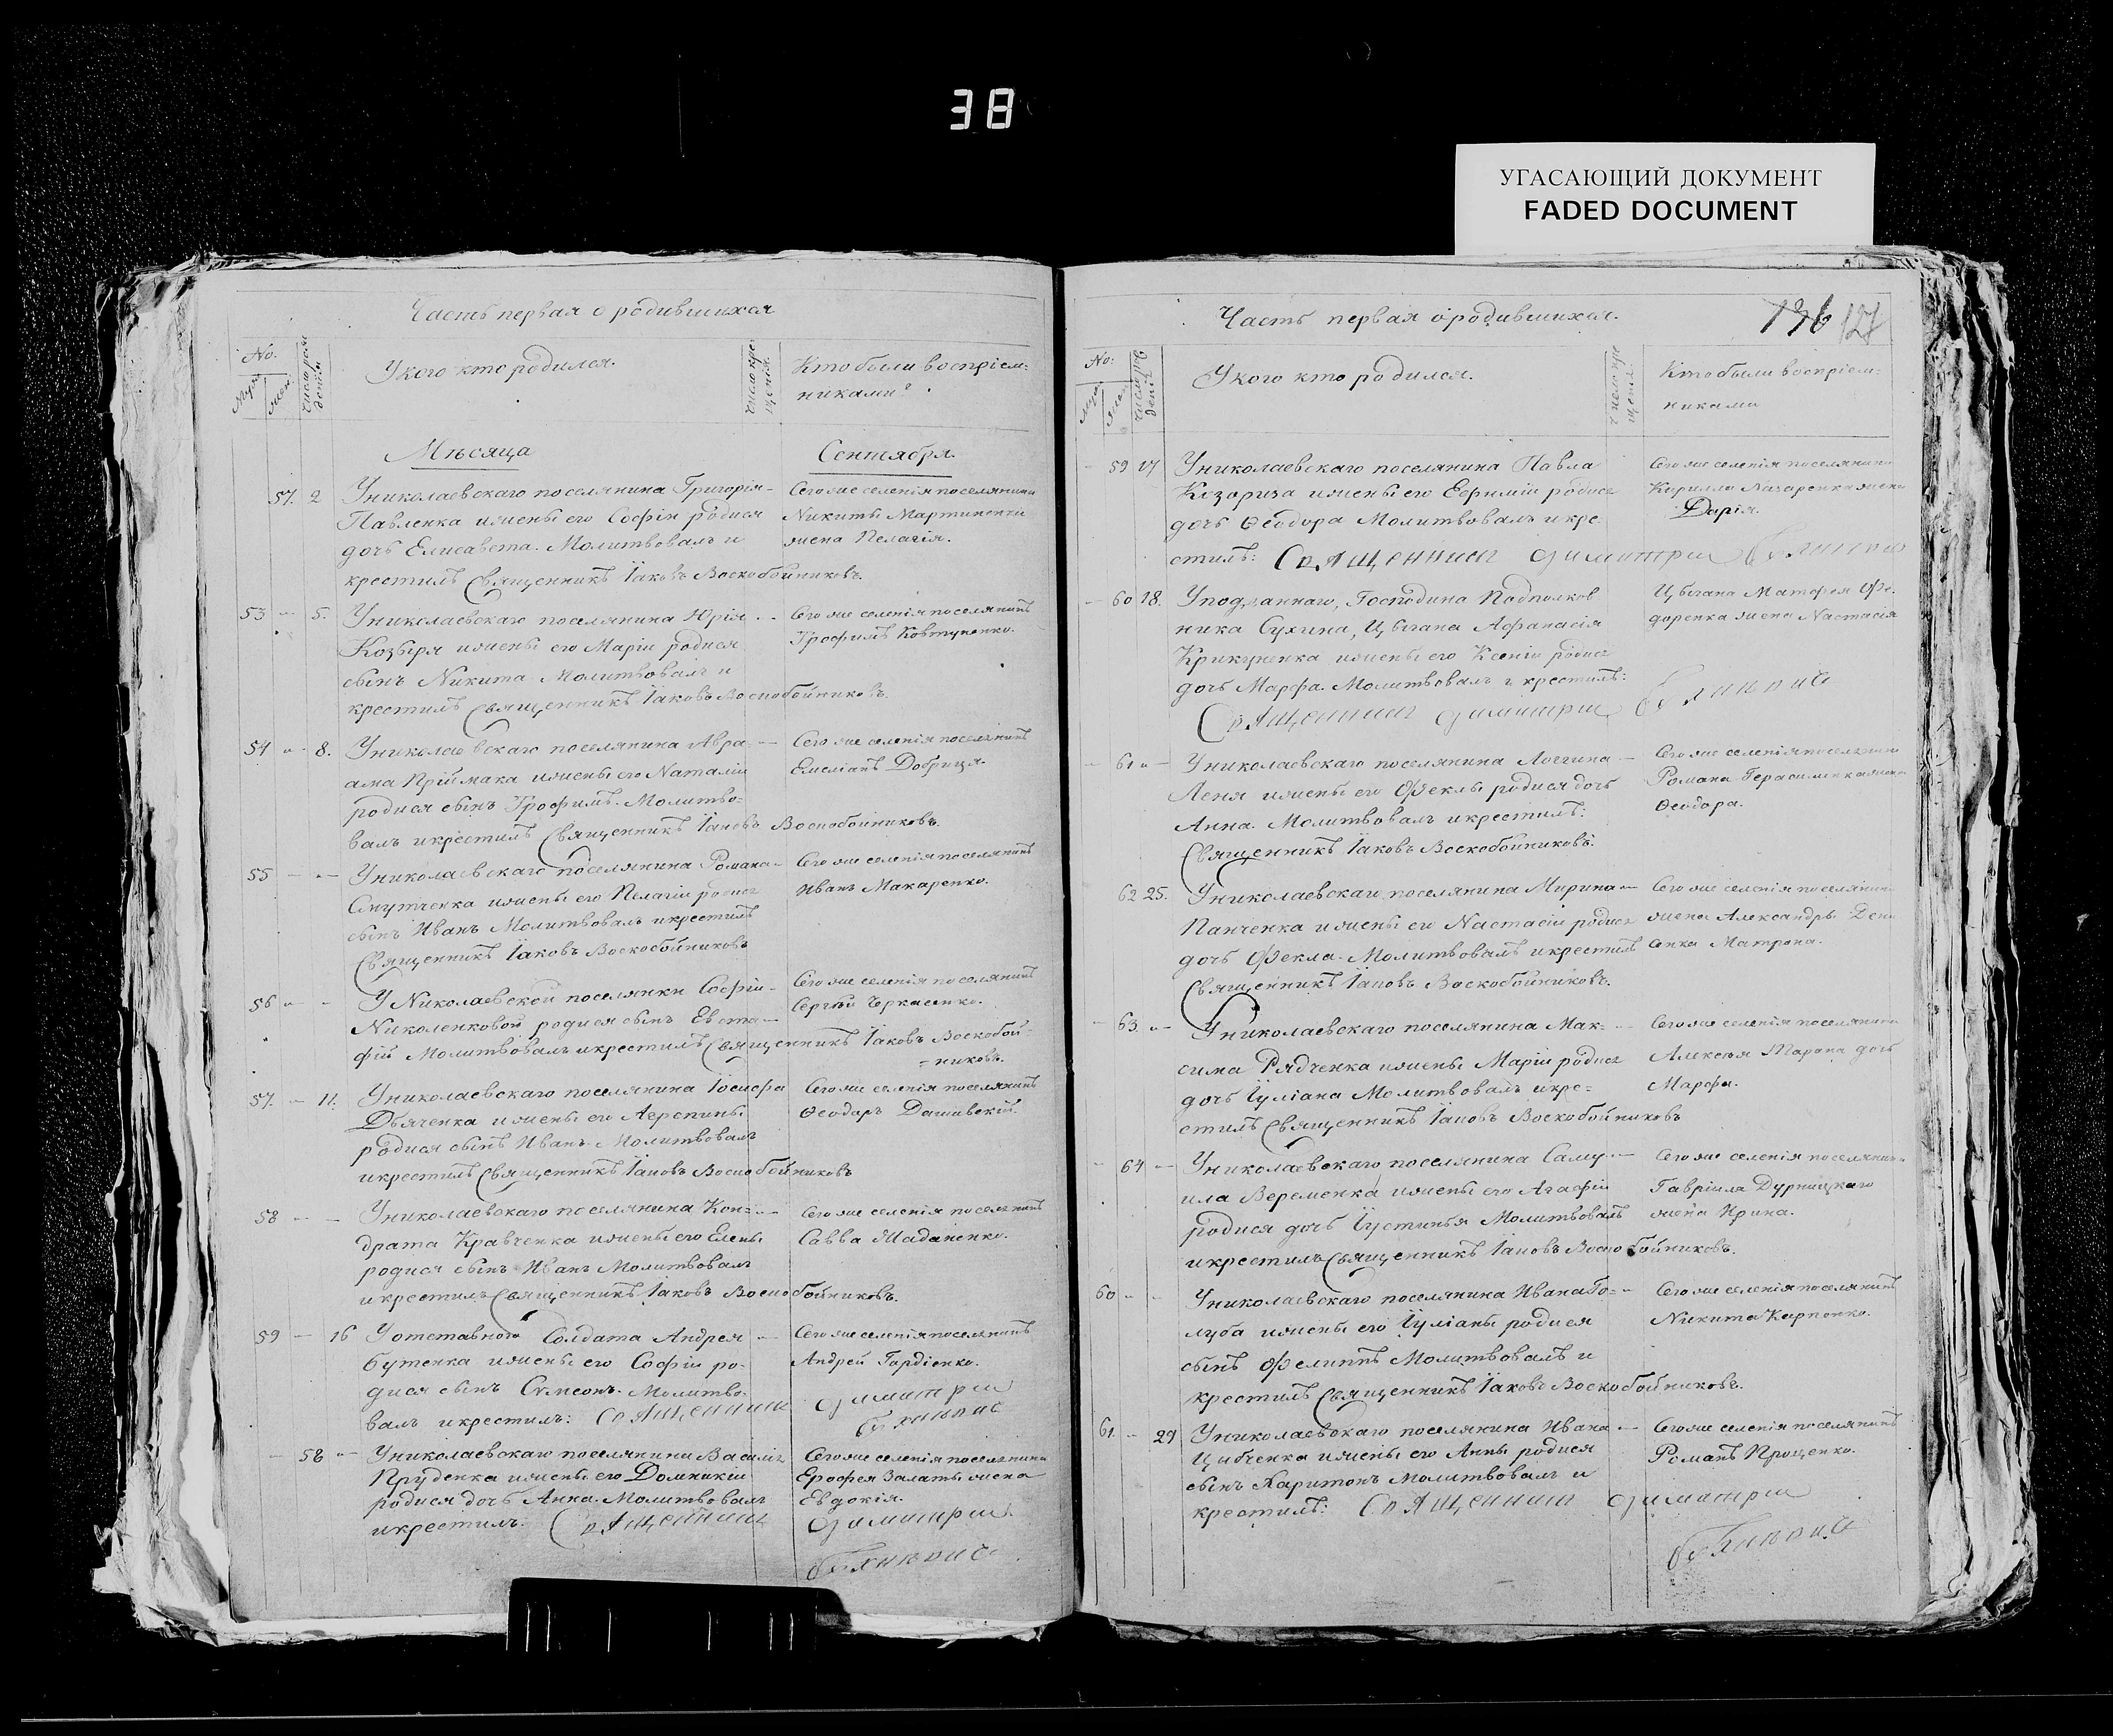 38
УГАСАЮЩИЙ ДОКУМЕНТ
FADED DOCUMENT
Часть первая о родившихся
No.
Число рож
денія
У кого кто родился.
Число кре
щенія.
Кто были воспріем:
никами?
Мѣсяца Сентября.
57. 2 У николаевскаго поселянина Григорія
Павленка и жены его Софіи родися
дочь Елисавета. Молитвовалъ и
крестилъ Священникъ Іаковъ Воскобойниковъ.
Сего же селенія поселянина
Никиты Мартиненка
жена Пелагія.
53 5. У николаевскаго поселянина Юрія
Козыря и жены его Маріи родися
сынъ Никита Молитвовалъ и
крестилъ Священникъ Іаковъ Воскобойниковъ.
Сего же селенія поселянинъ
Трофимъ Ковтуненко.
54 8. У николаевскаго поселянина Авра
ама Пріймака и жены его Наталіи
родися сынъ Трофимъ. Молитво=
валъ и крестилъ Священникъ Іаковъ Воскобойниковъ.
Сего же селенія поселянинъ
Емеліанъ Добриця.
55 У николаевскаго поселянина Романа
Смутченка и жены его Пелагіи родися
сынъ Иванъ Молитвовалъ и крестилъ
Священникъ Іаковъ Воскобойниковъ
Сего же селенія поселянинъ
Иванъ Макаренко.
56 У Николаевской поселянки Софіи
Николенковой родися сынъ Евста
фій Молитвовалъ и крестилъ Священникъ Іаковъ Воскобой=
=никовъ.
Сего же селенія поселянинъ
Сергѣй Черкасенко.
57. 11. У николаевскаго поселянина Іосифа
Дьяченка и жены его Агрепины
родися сынъ Иванъ Молитвовалъ
и крестилъ Священникъ Іаковъ Воскобойниковъ
Сего же селенія поселянинъ
Ѳеодоръ Дашавскій.
58 У николаевскаго поселянина Кон=
драта Кравченка и жены его Елены
родися сынъ Иванъ Молитвовалъ
и крестилъ Священникъ Іаковъ Воскобойниковъ.
Сего же селенія поселянинъ
Савва Шаданенко.
59 16 У отставного Солдата Андрея
Бутенка и жены его Софіи ро-
дися сынъ Сѵмеонъ. Молитво-
валъ и крестилъ: Священникъ Димитрий
Сего же селенія поселянинъ
Андрей Гордіенко.
58 У николаевскаго поселянина Василія
Пруденка и жены его Домникіи
родися дочь Анна. Молитвовалъ
и крестилъ: Священникъ Димитрий
Сего же селенія поселянина
Ерофея Залаты жена
Евдокія.
Часть первая о родившихся.
136 127
No:
У кого кто родился.
Кто были воспріем:
никами
59 17 У николаевскаго поселянина Павла
Козориза и жены его Ефиміи родися
дочь Ѳеодора Молитвовалъ и кре
стилъ: Священникъ Димитрий
Сего же селенія поселянина
Кирилла Лазаренка жена
Дарія.
60 18. У подданнаго, Господина Подполков
ника Сухина, Цыгана Афанасія
Крикуненка и жены его Ксеніи родися
дочь Марфа. Молитвовалъ и крестилъ:
Священникъ Димитрий
Цыгана Матфея Фе.
доренка жена Настасія
61 У николаевскаго поселянина Логгина
Леня и жены его Феклы родися дочь
Анна. Молитвовалъ и крестилъ:
Священникъ Іаковъ Воскобойниковъ.
Сего же селенія поселянина
Романа Герасименка жена
Ѳеодора.
62 25. У николаевскаго поселянина Мирина
Панченка и жены его Настасіи родися
дочь Фекла. Молитвовалъ и крестилъ
Священникъ Іаковъ Воскобойниковъ.
Сего же селенія поселянина
жена Александръ Ден
сенка Матрона.
63. У николаевскаго поселянина Мак=
сима Рядченка и жены Маріи родися
дочь Іуліана Молитвовалъ и кре=
стилъ Священникъ Іаковъ Воскобойниковъ
Сего же селенія поселянина
Алексѣя Тарана дочь
Марфа.
64 У николаевскаго поселянина Саму
ила Веременка и жены его Агафіи
родися дочь Іустинья Молитвовалъ
и крестилъ Священникъ Іаковъ Воскобойниковъ.
Сего же селенія поселянина
Гавріила Дурницкаго
жена Ирина.
60 У николаевскаго поселянина Ивана Го=
луба и жены его Іуліаны родися
сынъ Филиппъ Молитвовалъ и
крестилъ Священникъ Іаковъ Воскобойниковъ.
Сего же селенія поселянинъ
Никита Карпенко.
61. 29 У николаевскаго поселянина Ивана
Цибченка и жены его Анны родися
сынъ Харитонъ Молитвовалъ и
крестилъ: Священникъ Димитрий
Сего же селенія поселянинъ
Романъ Проценко.